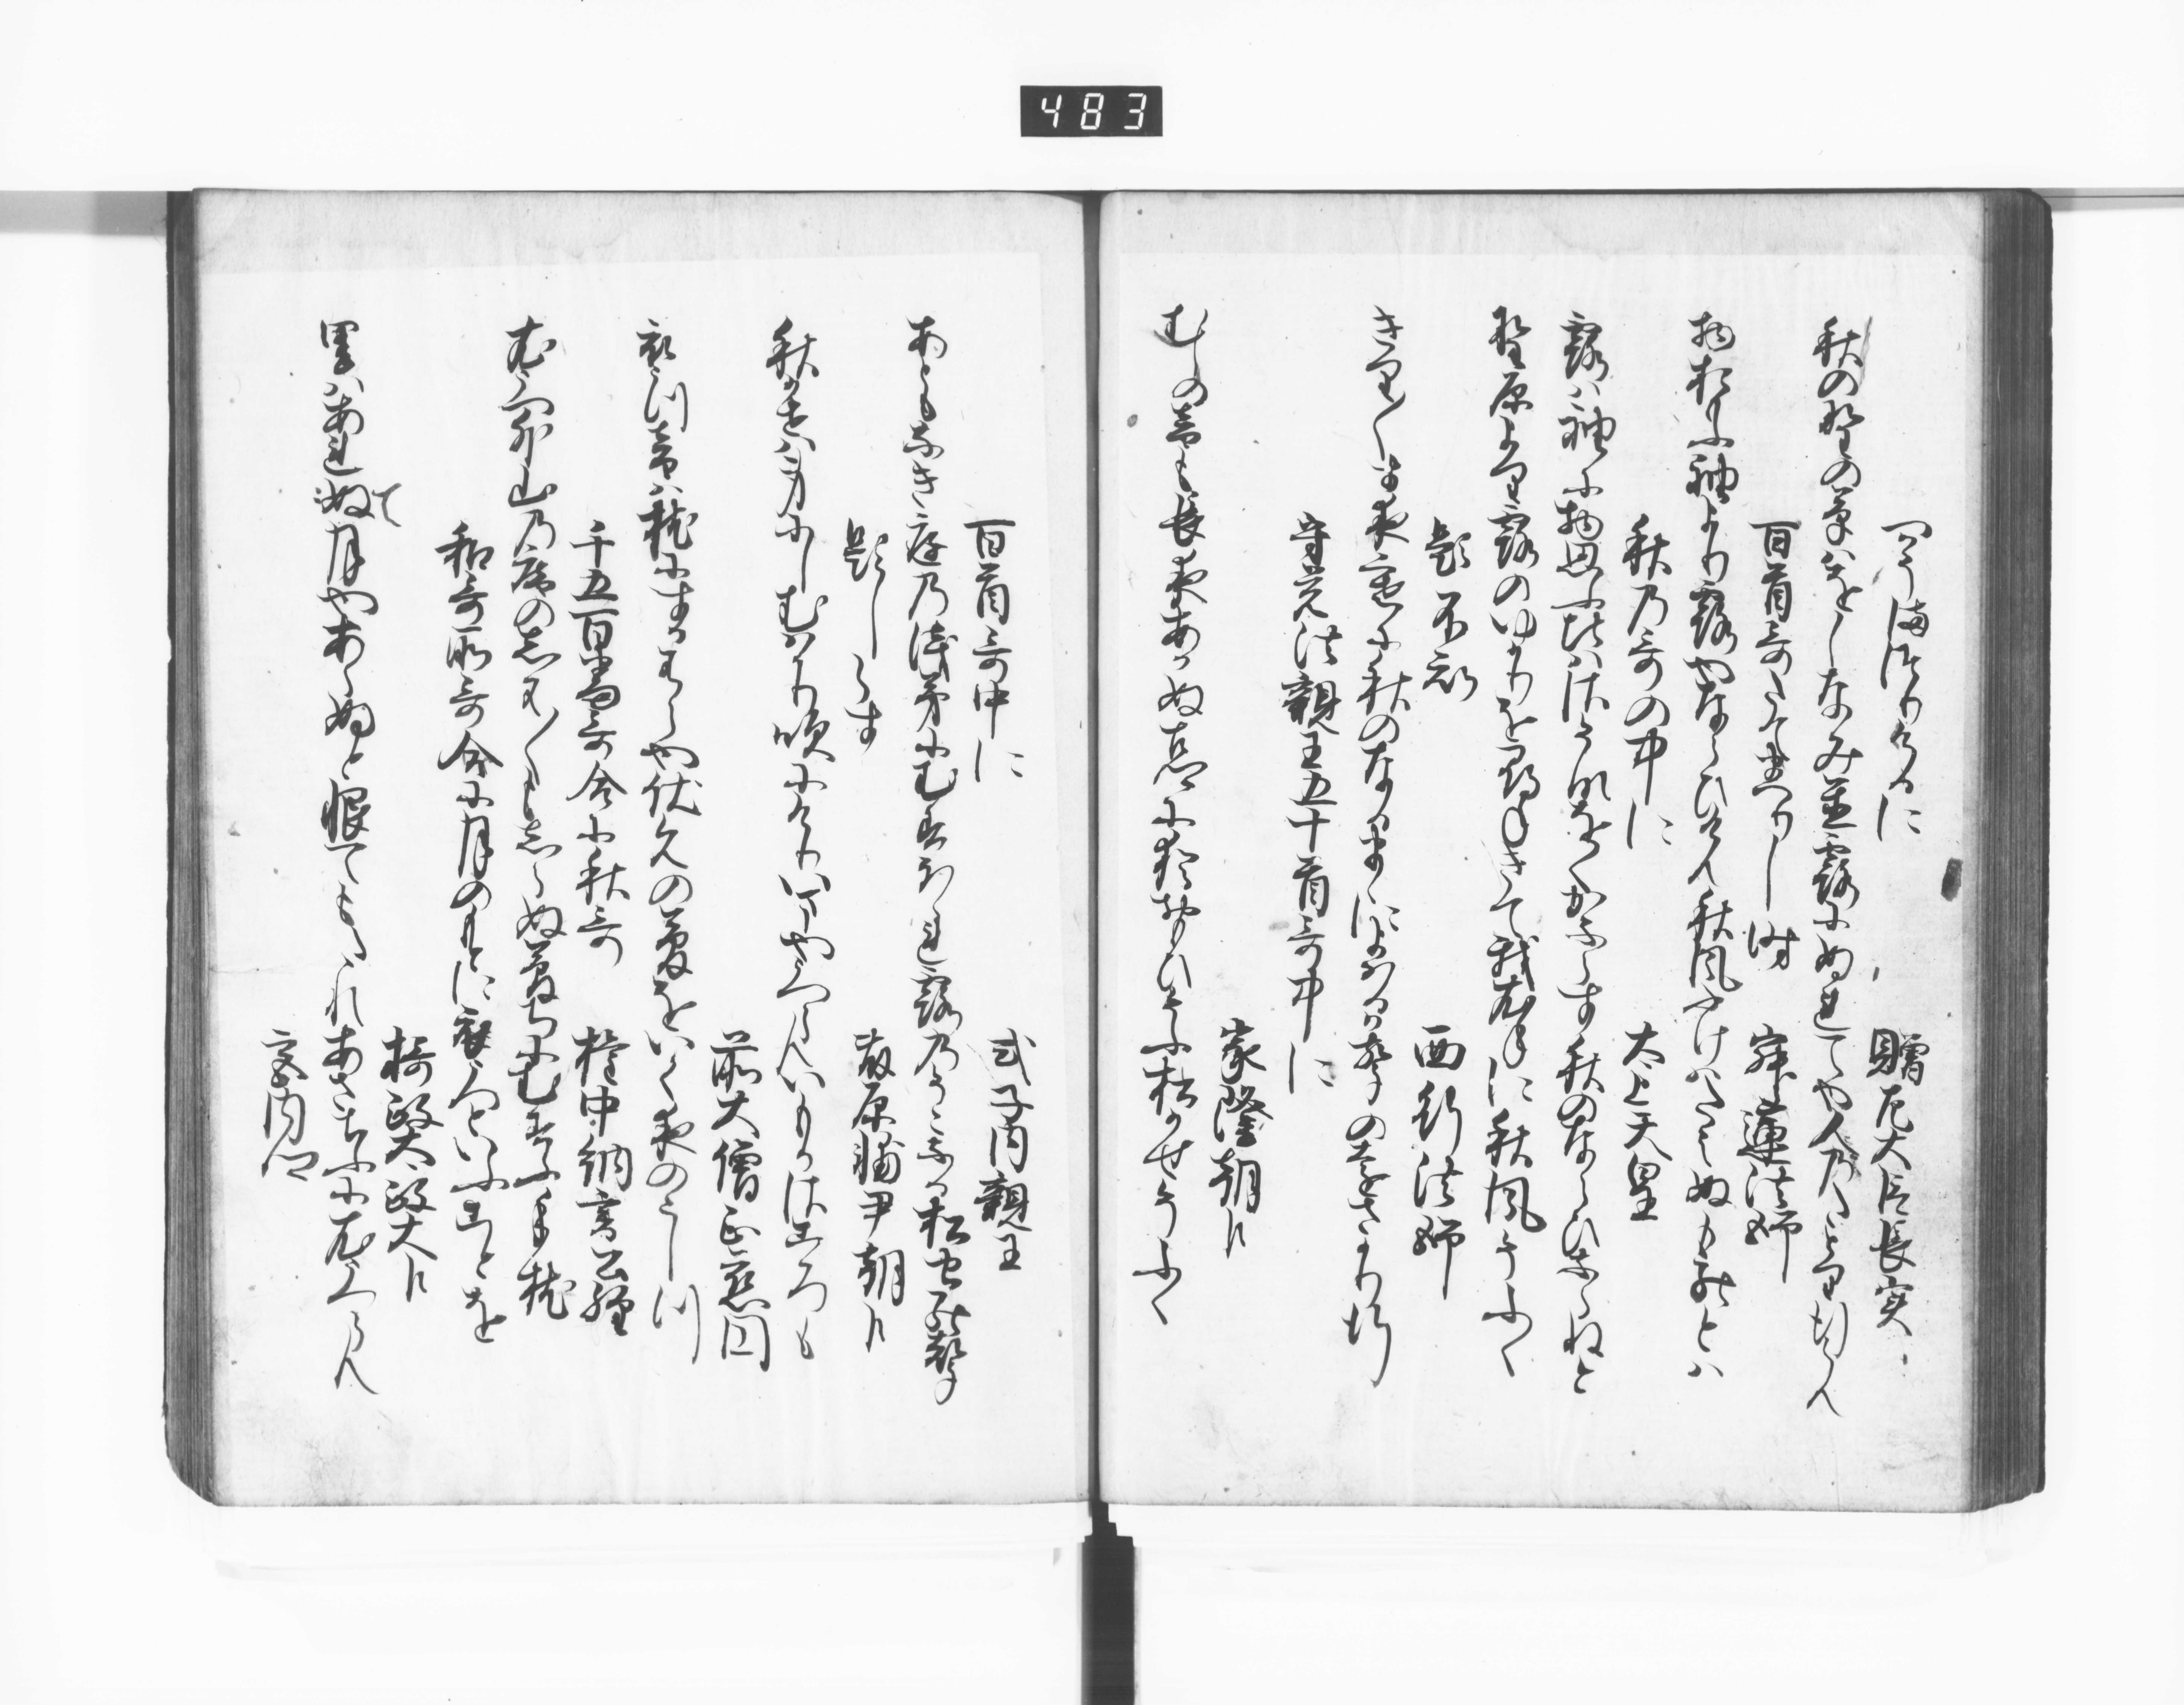 つかうまつりけるに
贈左大臣長実
秋の野の草はをしなみ置露にぬれてや人乃たつね行らん
百首哥たてまつりし時
寂蓮法師
物おもふ袖より露やならひけん秋風ふけはたえぬものとハ
秋乃哥の中に
太上天皇
露ハ袖に物思ふ比ハさそなをくかならす秋のならひならねと
野原より露のゆかりを尋きて我衣手に秋風そふく
題不知
西行法師
きり〱す夜寒に秋のなるまゝによはるか声のとをさかり行
守覚法親王五十首哥中に
家隆朝臣
むしの音も長き夜あかぬ古郷に猶おもひそふ松かせそふく
百首哥中に
式子内親王
あともなき庭乃浅茅にむすほれ露乃そこなる松虫の声
題しらす
藤原輔尹朝臣
秋かせハ身にしむはかり吹にけりいまやうつらんいもかさころも
前大僧正慈円
衣うつ音ハ枕にすかはらや伏見の夢をいく夜のこしつ
千五百番哥合に秋哥
権中納言公経
衣うつ深山乃庵のしは〱もしらぬ夢ちにむすふ手枕
和哥所哥合に月のもとに衣うつといふことを
摂政太政大臣
里ハあれぬ月やあらぬと恨てもたれあさちふに衣うつらん
て
宮内卿
483